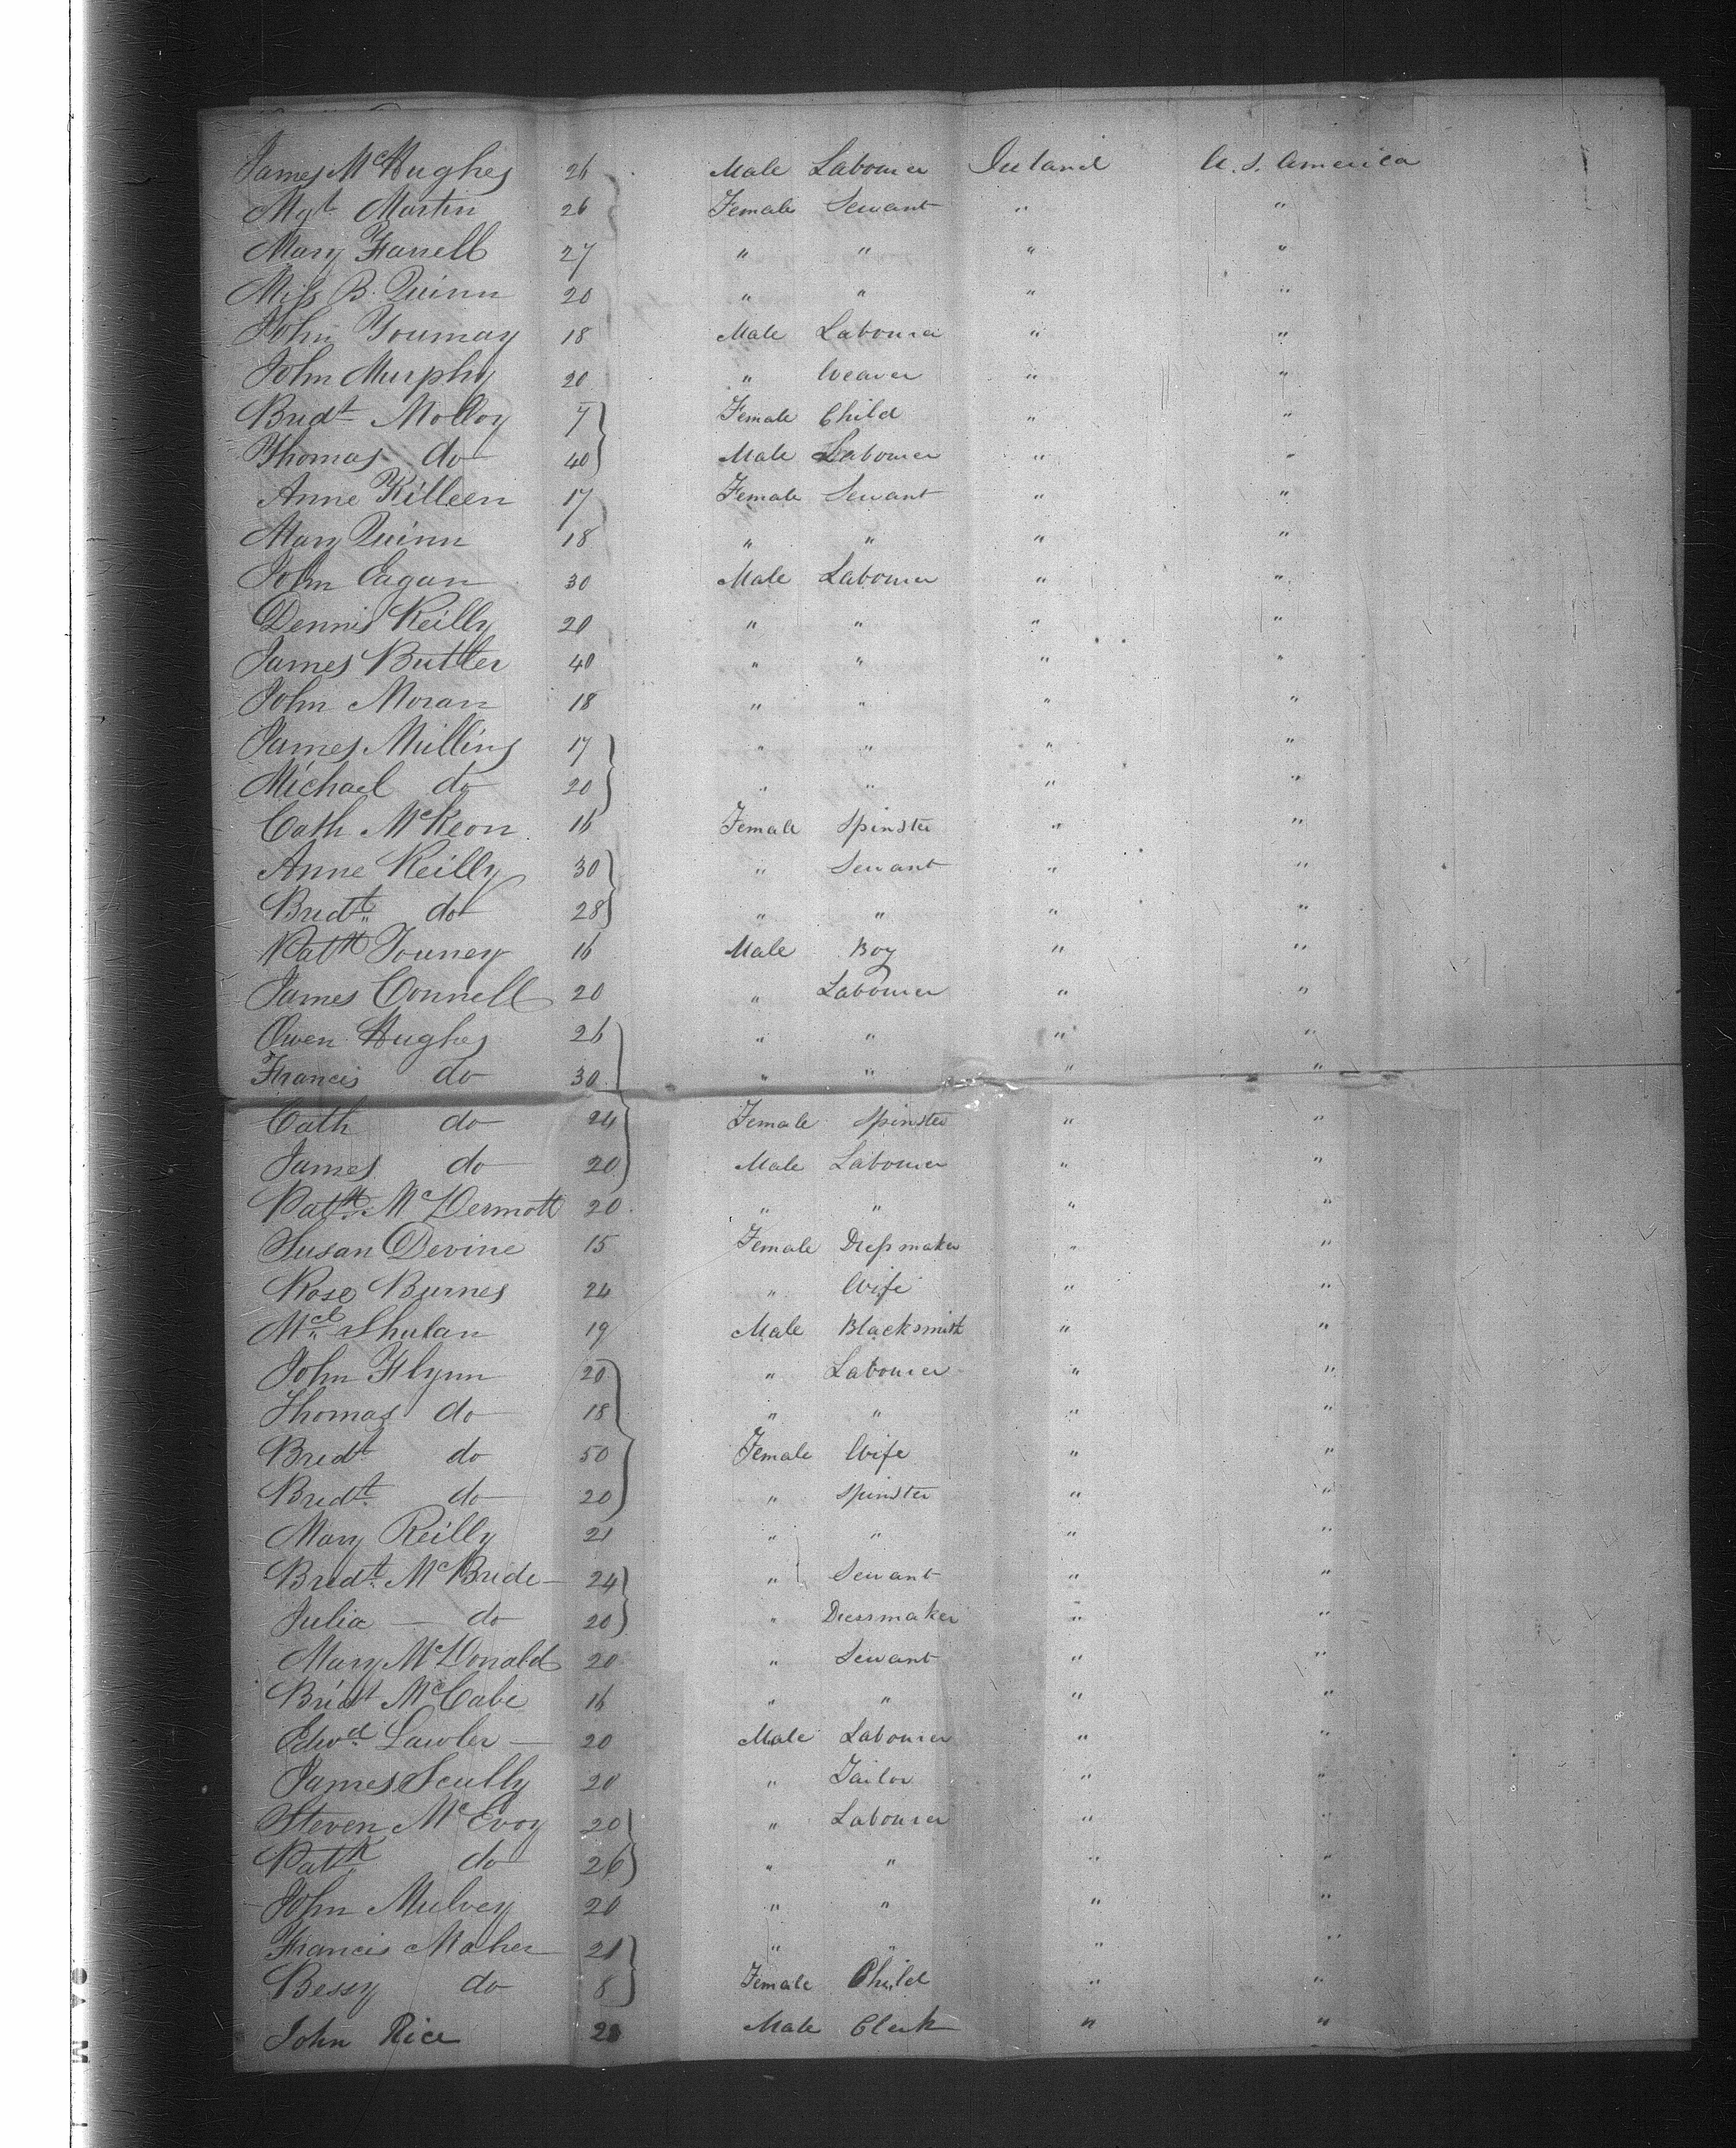 James McHughes 26 Male Labourer Ireland U. S. America
Mgt Martin 26 Female Servant " "
Mary Farrell 27 " " " "
Miss B. Quinn 20 " " " "
John Tournay 18 Male Labourer " "
John Murphy 20 " Weaver " "
Bridt Molloy 7 Female Child " "
Thomas do 40 Male Labourer " "
Anne Killeen 17 Female Servant " "
Mary Quinn 18 " " " "
John Eagan 30 Male Labourer " "
Dennis Reilly 20 " " " "
James Butler 40 " " " "
John Moran 18 " " " "
James Milling 17 " " " "
Michael do 20 " " " "
Cath McKeon 16 Female Spinster " "
Anne Reilly 30 " Servant " "
Bridt do 28 " " " "
Patk Tourney 16 Male Boy " "
James Connell 20 " Labourer " "
Owen Hughes 26 " " " "
Francis do 30 " " " "
Cath do 24 Female Spinster " "
James do 20 Male Labourer " "
Patk McDermott 20 " " " "
Susan Devine 15 Female Dressmaker " "
Rose Burnes 24 " Wife " "
Mcl Shulan 19 Male Blacksmith " "
John Flynn 20 " Labourer " "
Thomas do 18 " " " "
Bridt do 50 Female Wife " "
Bridt do 20 " Spinster " "
Mary Reilly 21 " " " "
Bridt McBride 24 " Servant " "
Julia do 20 " Dressmaker " "
Mary McDonald 20 " Servant " "
Bridt McCabe 16 " " " "
Edwd Lawler 20 Male Labourer " "
James Scully 20 " Tailor " "
Steven McEvoy 20 " Labourer " "
Patk do 26 " " " "
John Mulvey 20 " " " "
Francis Maher 21 " " " "
Bessy do 8 Female Child " "
John Rice Male Clerk " "